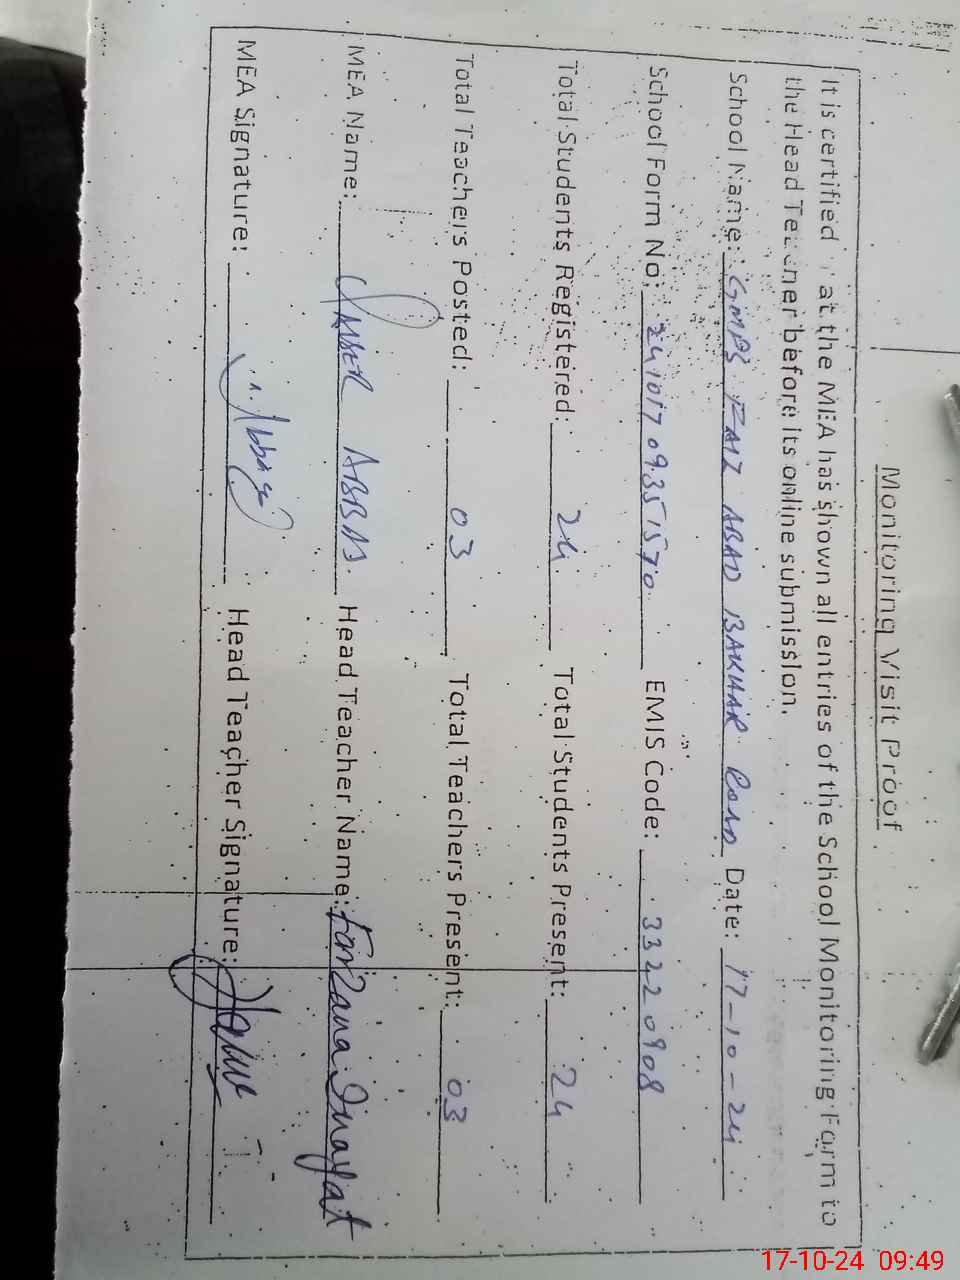 Monitoring Visit Proof
It is certified at the MEA has shown all entries of the School Monitoring Form to
the Head Teacher before its online submission.
School Name: GMPS FAIZ ABAD BAKHAR ROAD Date: 17-10-24
School Form No: EMIS Code: 33220908
Total Students Registered: 24 Total Students Present: 24
Total Teachers Posted: 03 Total Teachers Present: 03
MEA Name: YASSER ABBAS Head Teacher Name: Farzana Inayat
MEA Signature: Y. Abbas Head Teacher Signature:
17-10-24 09:49